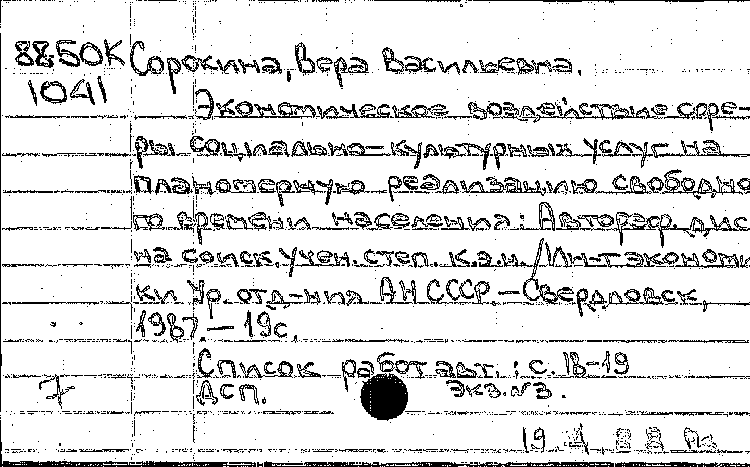 88-50К Сорокина, Вера Васильевна.
1041
Экономическое воздействие сфе-
ры социально-культурных услуг на
планомерную реализацию свободно-
го времени населения: Автореф. дис.
на соиск. учен. степ. к.э.н. /Ин-т экономи-
ки Ур. отд-ния АН СССР.-Свердловск,
1987.-19с.
Список работ авт.: с. 18-19
7 ДСП. экз.№3.
19 4 88 Рк